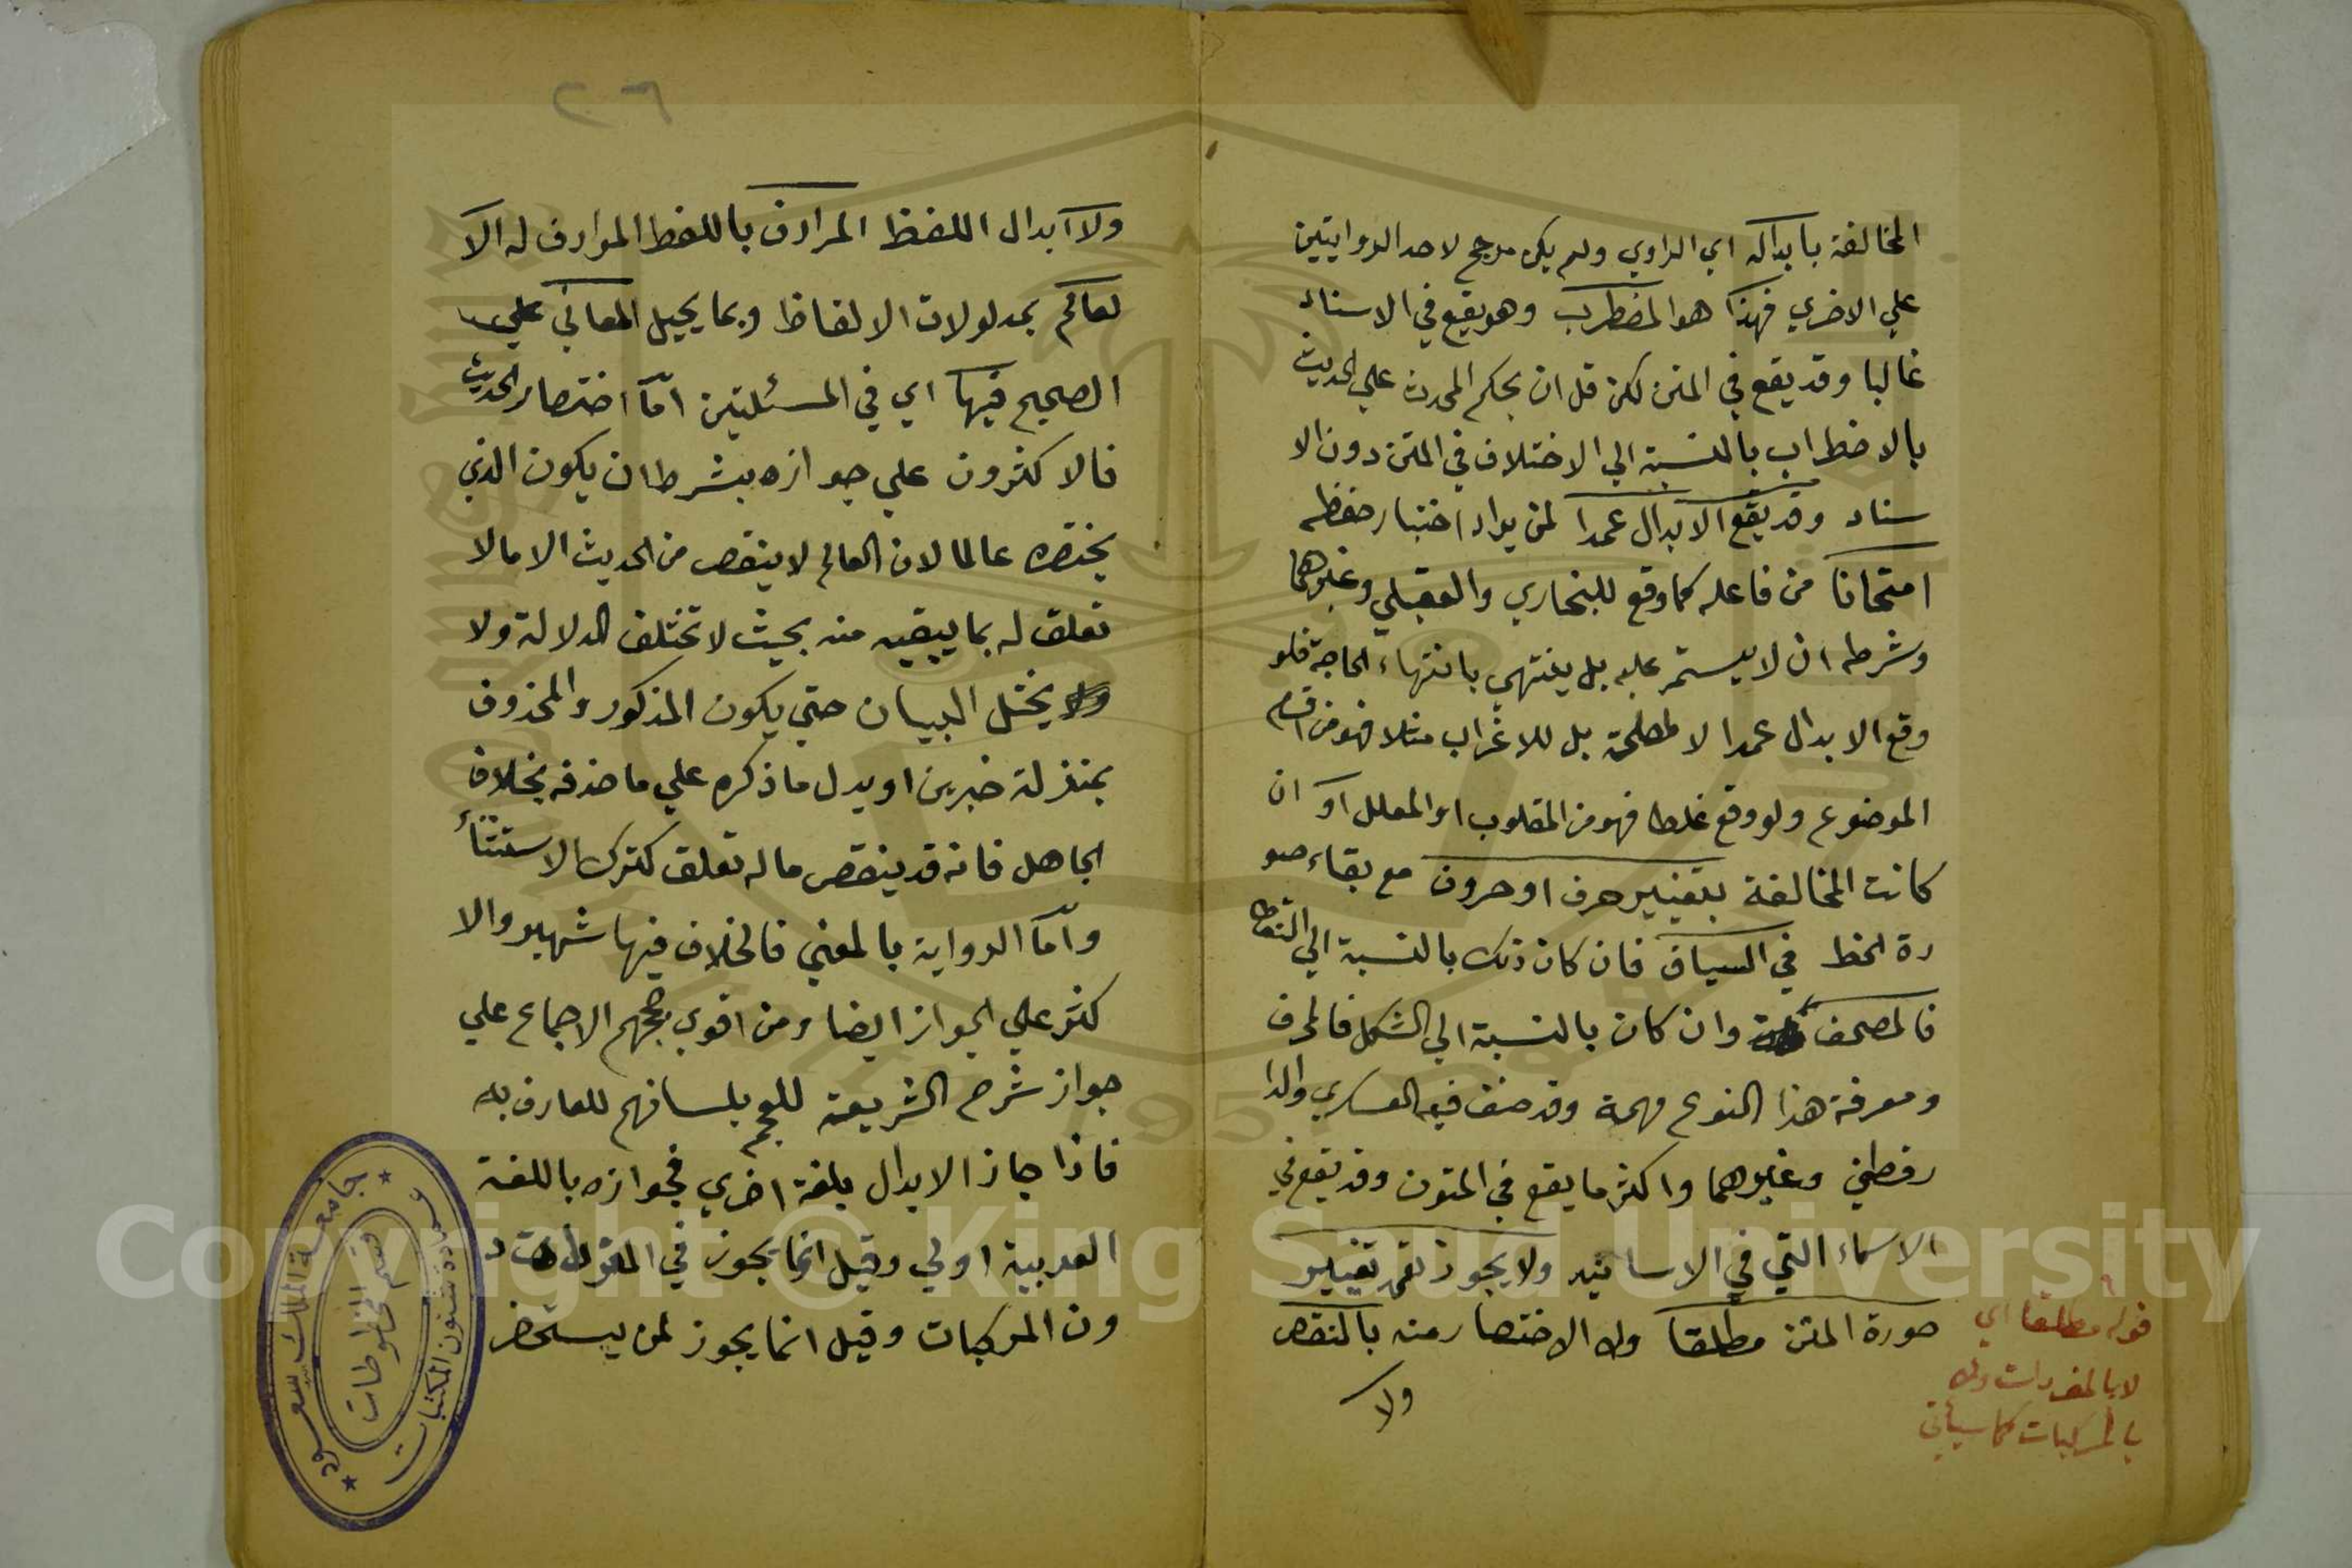 المخالفة بابداله اي الراوي ولم يكن مرجح لاحد الروايتين
علي الاخري فهذا هو المضطرب وهو يقع في الاسناد
غالبا وقد يقع في المتن لكن قل ان يحكم المحدث علي الحديث
بالاضطراب بالنسبة الي الاختلاف في المتن دون الا
سناد وقد يقع الابدال عمدا لمن يراد اختبار حفظه
امتحانا من فاعله كما وقع للبخاري والعقيلي وغيرهما
وشرطه ان لا يستمر عليه بل ينتهي بانتهاء الحاجة فلو
وقع الابدال عمدا لا لمصلحة بل للاغراب مثلا فهو من اقسام
الموضوع ولو وقع غلطا فهو من المقلوب او المعلل او ان
كانت المخالفة بتغيير حرف او حروف مع بقاء صو
رة الخط في السياق فان كان ذلك بالنسبة الي النقط
فالمصحف وان كان بالنسبة الي الشكل فالمحرف
ومعرفة هذا النوع مهمة وقد صنف فيه العسكري والدا
رقطني وغيرهما واكثر ما يقع في المتون وقد يقع في
الاسماء التي في الاسانيد ولا يجوز تعمد تغيير
صورة المتن مطلقا ولا الاختصار منه بالنقص
ولا
قوله مطلقا اي
لا بالمفردات ولا
بالمركبات كما سيأتي
٢٦
ولا ابدال اللفظ المرادف باللفظ المرادف له الا
لعالم بمدلولات الالفاظ وبما يحيل المعاني علي
الصحيح فيها اي في المسئلتين امّا اختصار الحديث
فالاكثرون علي جوازه بشرط ان يكون الذي
يختصره عالما لان العالم لا ينقص من الحديث الا ما لا
تعلق له بما يبقيه منه بحيث لا تختلف الدلالة ولا
يختل البيان حتي يكون المذكور والمحذوف
بمنزلة خبرين او يدل ما ذكره علي ما حذفه بخلاف
الجاهل فانه قد ينقص ما له تعلق كترك الاستثناء
وامّا الرواية بالمعني فالخلاف فيها شهير والا
كثر علي الجواز ايضا ومن اقوي حججهم الاجماع علي
جواز شرح الشريعة للعجم بلسانهم للعارف به
فاذا جاز الابدال بلغة اخري فجوازه باللغة
العربية اولي وقيل انما يجوز في المفردات د
ون المركبات وقيل انما يجوز لمن يستحضر
جامعة الملك سعود
عمادة شئون المكتبات
قسم المخطوطات
1957
Copyright © King Saud University